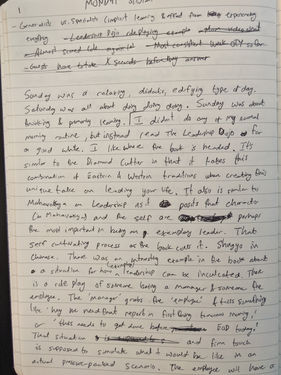 1
MONDAY
- Generalists vs. Specialists (implicit learning &
everything
- Leadership Dojo roleplaying example
- Almost scored
- Most consistent week
- Guess have to take seconds before my answer
Sunday was a relaxing, didactic, edifying type of day.
Saturday was all about doing doing doing. Sunday was about
thinking & primarily learning. I didn't do any of my normal
morning routine, but instead read The Leadership Dojo for
a good while. I like where the book is headed. It's
similar to the Diamond Cutter in that it takes this
combination of Eastern & Western traditions when creating this
unique take on leading your life. It also is similar to
Mahavakya on Leadership as it posits that character
(in Mahavakya) and the self are perhaps
the most important in being an exemplary leader. That
self cultivating process as the book calls it. Shugyo in
Chinese. There was an interesting example in the book about
a situation for how leadership can be inculcated. There
is a role play of someone being a manager & someone the
employee. The 'manager' grabs the 'employee' & says something
like 'hey we need that report in first thing tomorrow morning,'
or 'this needs to get done before EOD today!'
That situation and firm touch
is supposed to simulate what it would be like in an
actual pressure-packed scenario. The employee will have a